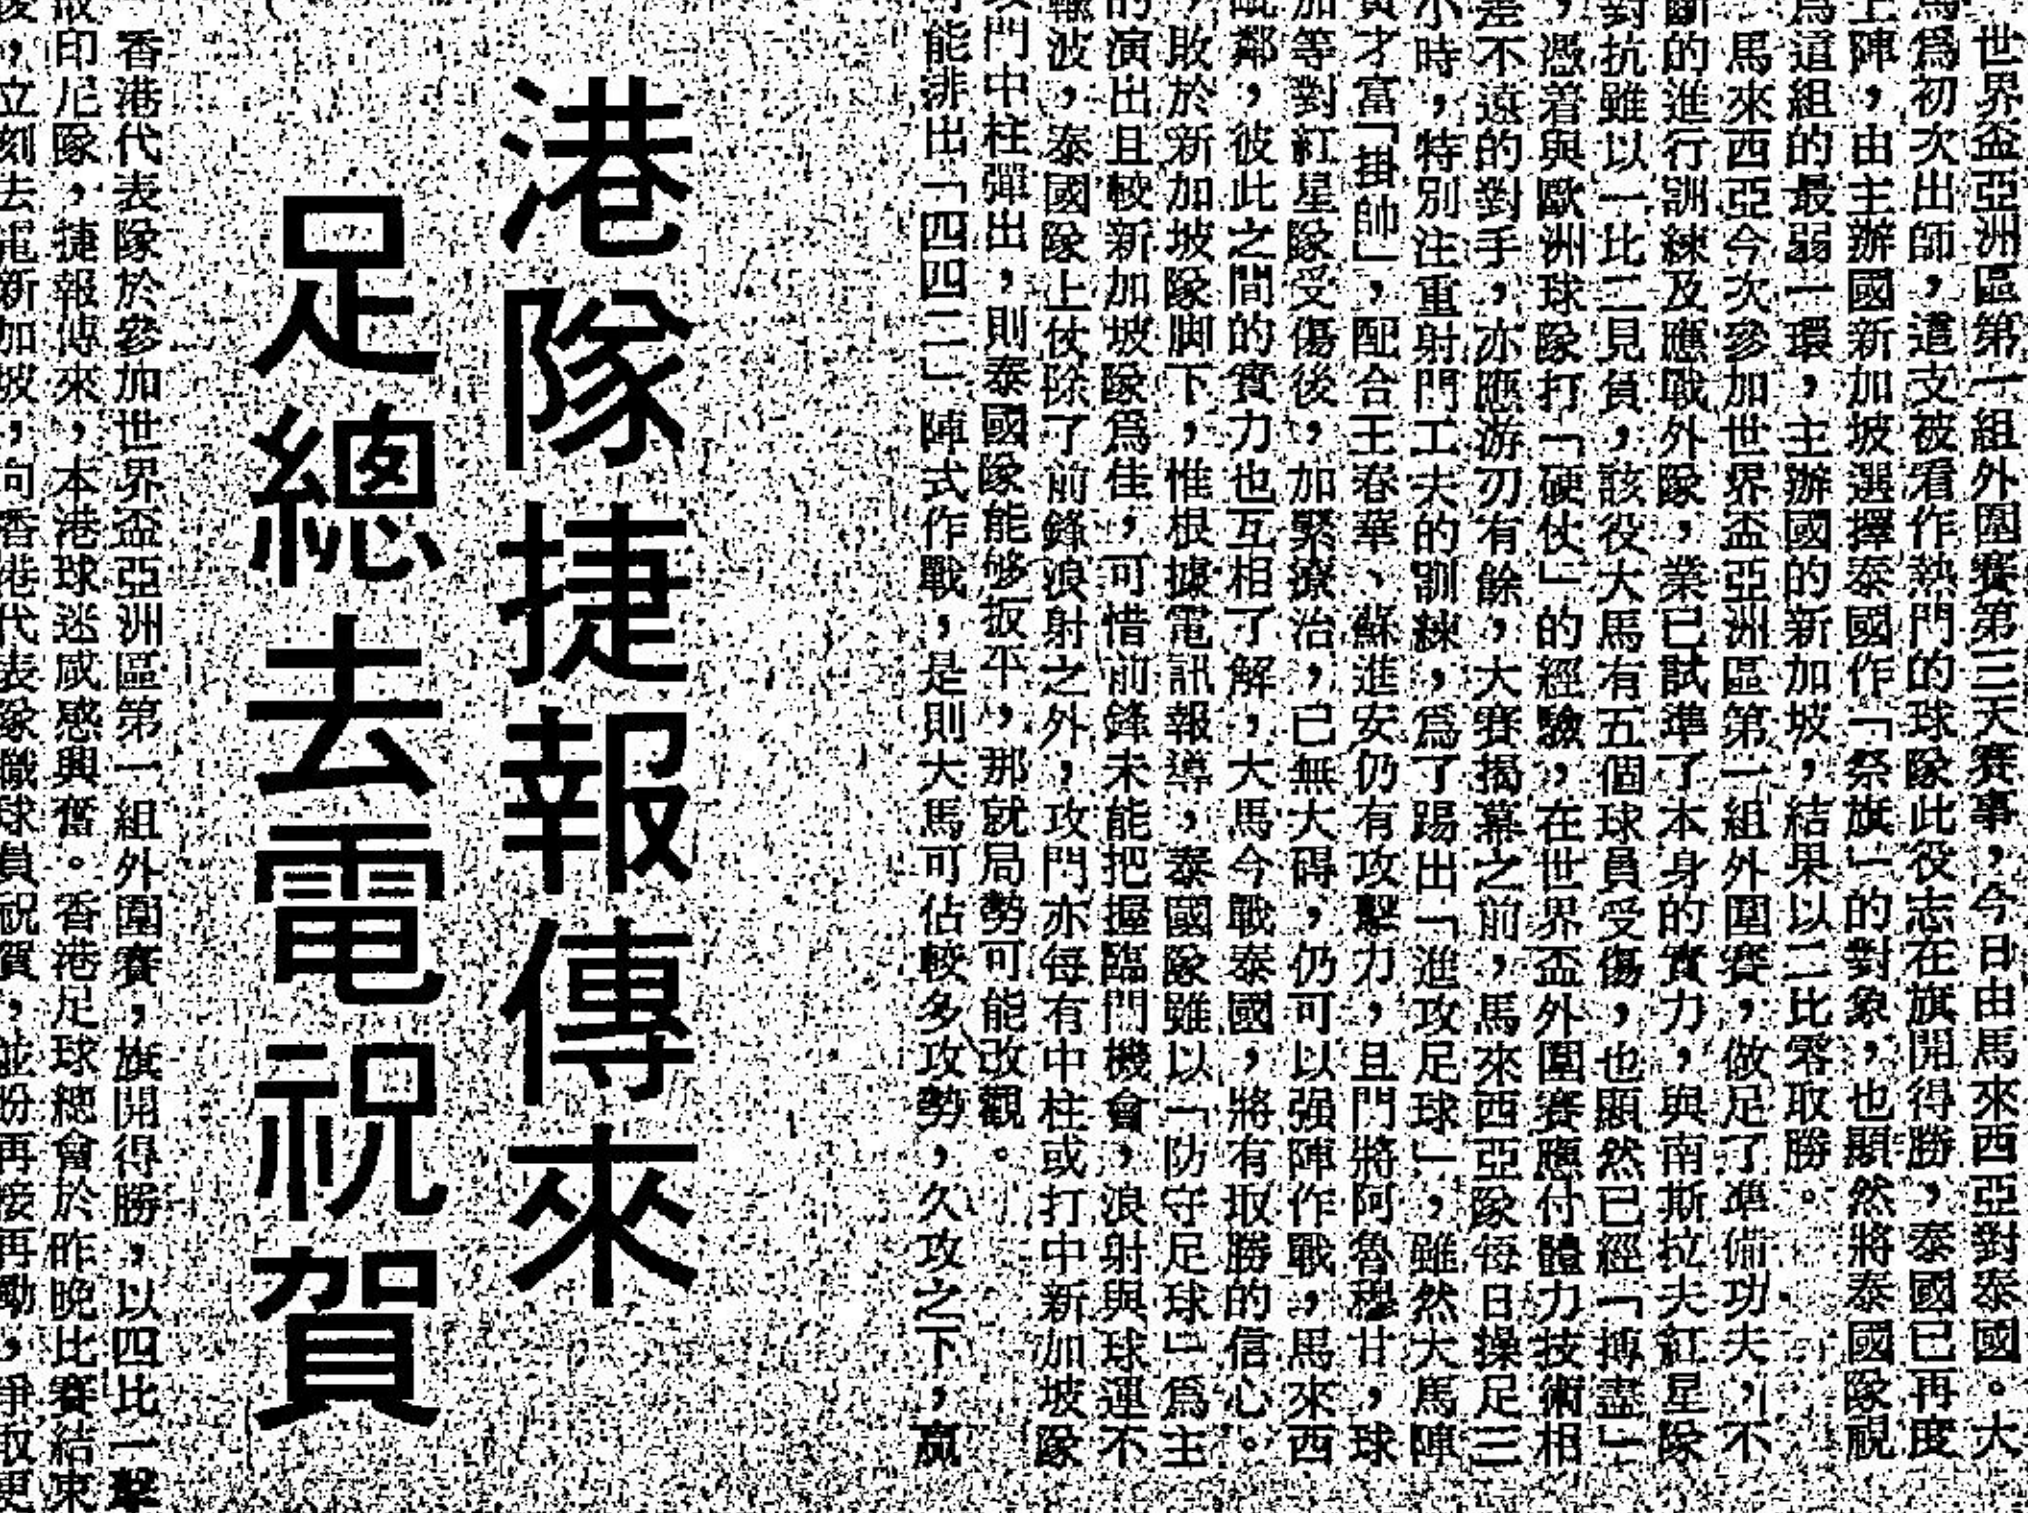 世界盃亞洲區第一組外圍賽第三天賽事，今日由馬來西亞對泰國。大
馬爲初次出師，這支被看作熱門的球隊此役志在旗開得勝，泰國已再度
上陣，由主辦國新加坡選擇泰國作「祭旗」的對象，也顯然將泰國隊視
爲道組的最弱一環，主辦國的新加坡，結果以二比零取勝。
馬來西亞今次參加世界盃亞洲區第一組外圍賽，做足了準備功夫，不
斷的進行訓練及應戰外隊，業已試準了本身的實力，與南斯拉夫紅星隊
對抗雖以一比二見負，該役大馬有五個球員受傷，也顯然已經「搏盡」
，憑着與歐洲球隊打「硬仗」的經驗，在世界盃外圍賽應付體力技術相
差不遠的對手，亦應游刃有餘，大賽揭幕之前，馬來西亞隊每日操足三
小時，特別注重射門工夫的訓練，爲了踢出「進攻足球」，雖然大馬陣
才富「掛帥」，配合王春華、蘇進安仍有攻擊力，且門將阿魯穆甘，球
加等對紅星隊受傷後，加緊療治，已無大碍，仍可以强陣作戰，馬來西
鄰，彼此之間的實力也互相了解，大馬今戰泰國，將有取勝的信心。
，敗於新加坡隊脚下，惟根據電訊報導，泰國隊雖以「防守足球」爲主
的演出且較新加坡隊爲佳，可惜前鋒未能把握臨門機會，浪射與球運不
輸波，泰國隊上仗除了前鋒浪射之外，攻門亦每有中柱或打中新加坡隊
攻門中柱彈出，則泰國隊能够扳平，那就局勢可能改觀。
能排出「四四二」陣式作戰，是則大馬可佔較多攻勢，久攻之下，贏
港隊捷報傳來
足總去電祝賀
香港代表隊於參加世界盃亞洲區第一組外圍賽，旗開得勝，以四比一擊
敗印尼隊，捷報傳來，本港球迷咸感興奮。香港足球總會於昨晚比賽結束
後，立刻去電新加坡，向香港代表隊職球員祝賀，並盼再接再勵，爭取更